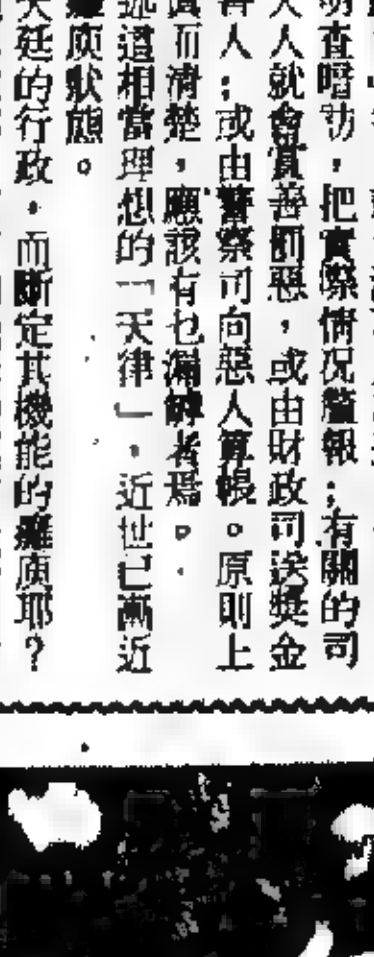 明查暗訪，把實際情况滙報；有關的司
人就會賞善罰惡，或由財政司送奬金
善人；或由警察司向惡人算帳。原則上
而清楚，應該有乜漏罅者焉。
述這相當理想的「天律」，近世已漸近
癱瘓狀態。
天廷的行政，而斷定其機能的癱瘓耶？